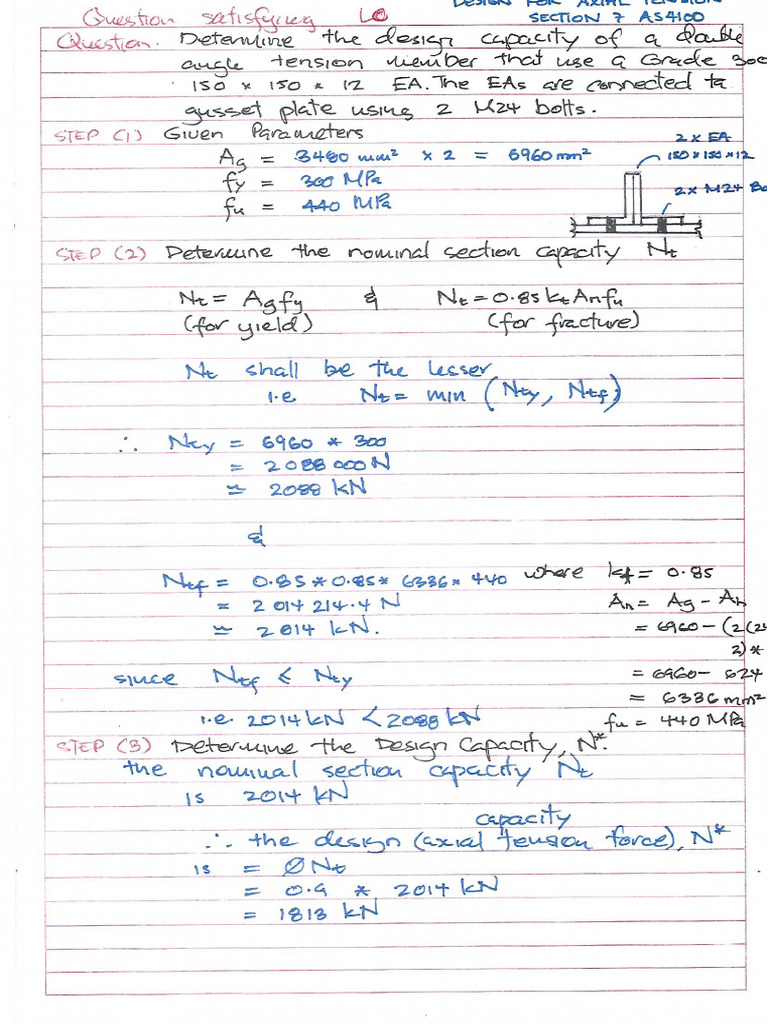 DESIGN FOR AXIAL TENSION
Question satisfying LO
SECTION 7 AS4100
Question. Determine the design capacity of a double
angle tension member that use a Grade 300
150 x 150 x 12 EA. The EAs are connected to
gusset plate using 2 M24 bolts.
STEP (1) Given Parameters
Ag = 3480 mm² x 2 = 6960 mm²
fy = 300 MPa
fu = 440 MPa
2 x EA
150 x 150 x 12
2 x M24 Bo
STEP (2) Determine the nominal section capacity Nt
Nt = Agfy & Nt = 0.85 kt Anfu
(for yield) (for fracture)
Nt shall be the lesser
i.e Nt = min (Nty, Ntf)
∴ Nty = 6960 * 300
= 2088 000 N
≃ 2088 kN
&
Ntf = 0.85 * 0.85 * 6336 * 440 where kt = 0.85
= 2 014 214.4 N An = Ag - Ah
≃ 2014 kN. = 6960 - (2(24
2) *
since Ntf < Nty = 6960 - 624
= 6336 mm²
i.e. 2014 kN < 2088 kN fu = 440 MPa
STEP (3) Determine the Design Capacity, N*.
the nominal section capacity Nt
is 2014 kN
capacity
∴ the design (axial tension force), N*
is = ØNt
= 0.9 * 2014 kN
= 1813 kN